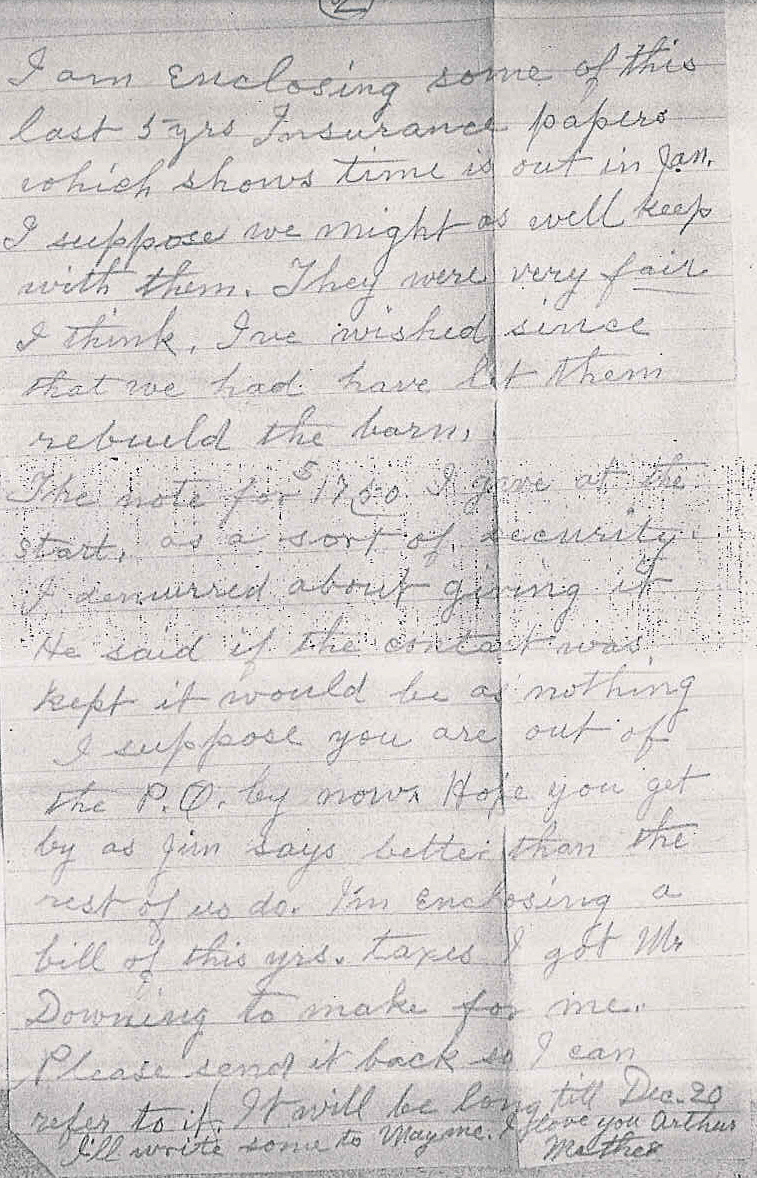 2
I am Enclosing some of this
last 5 yrs Insurance papers
which shows time is out in Jan.
I suppose we might as well keep
with them. They were very fair
I think. I've wished since
that we had have let them
rebuild the barn.
The note for $1750 I gave at the
start, as a sort of security.
I demurred about giving it
He said if the contact was
kept it would be as nothing
I suppose you are out of
the P.O. by now. Hope you get
by as Jim says better than the
rest of us do. I'm Enclosing a
bill of this yrs. taxes I got Mr
Downing to make for me.
Please send it back so I can
refer to it. It will be long till Dec. 20
I'll write some to Mayme. I love you Arthur
Mother